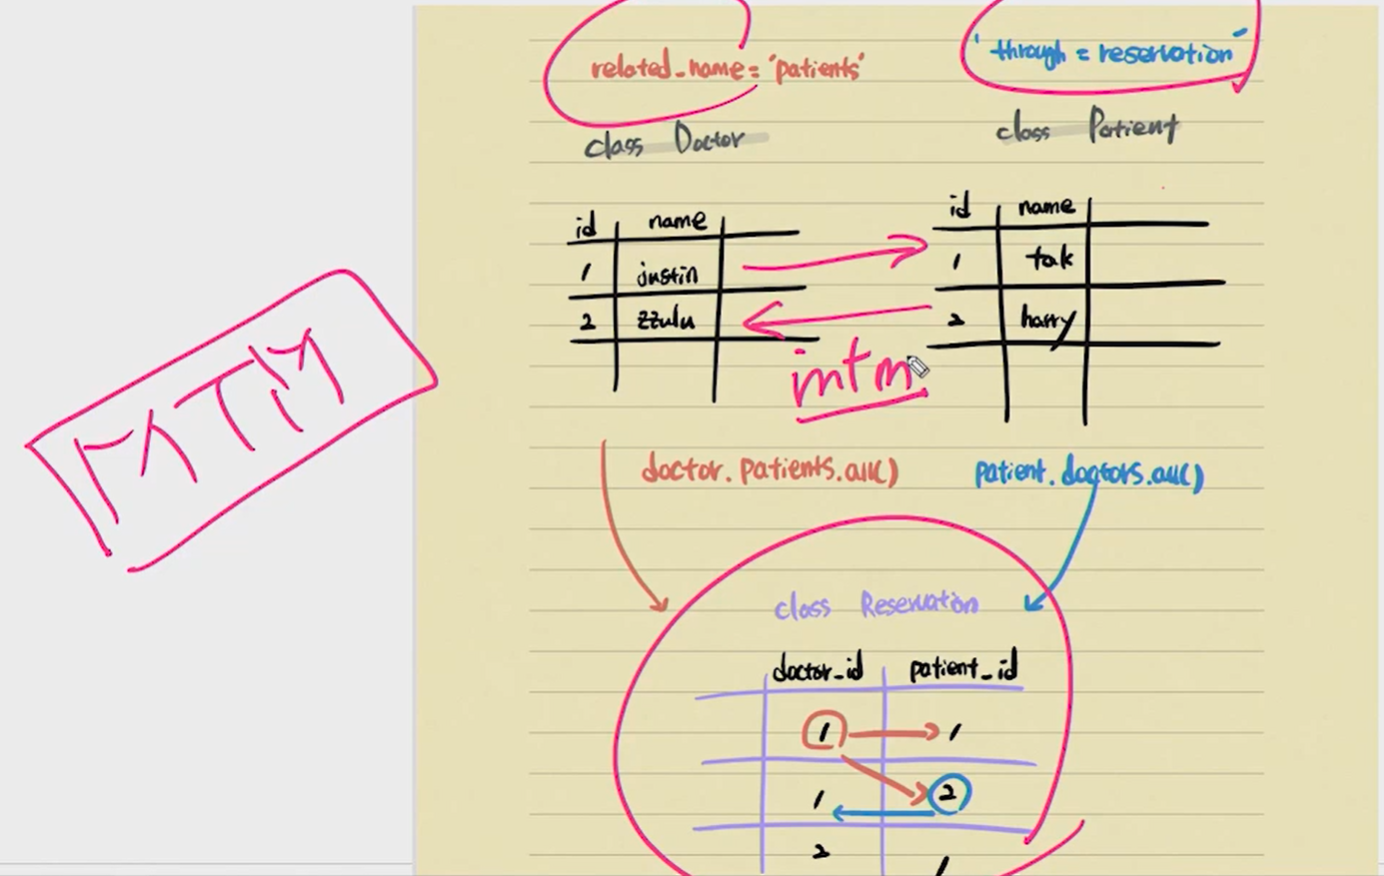 related_name = 'patients'
'through = reservation'
class Doctor
class Patient
id name
1 justin
2 zzulu
id name
1 tak
2 harry
MTM
doctor.patients.all()
patient.doctors.all()
class Reservation
doctor_id patient_id
1 1
1 2
2 1